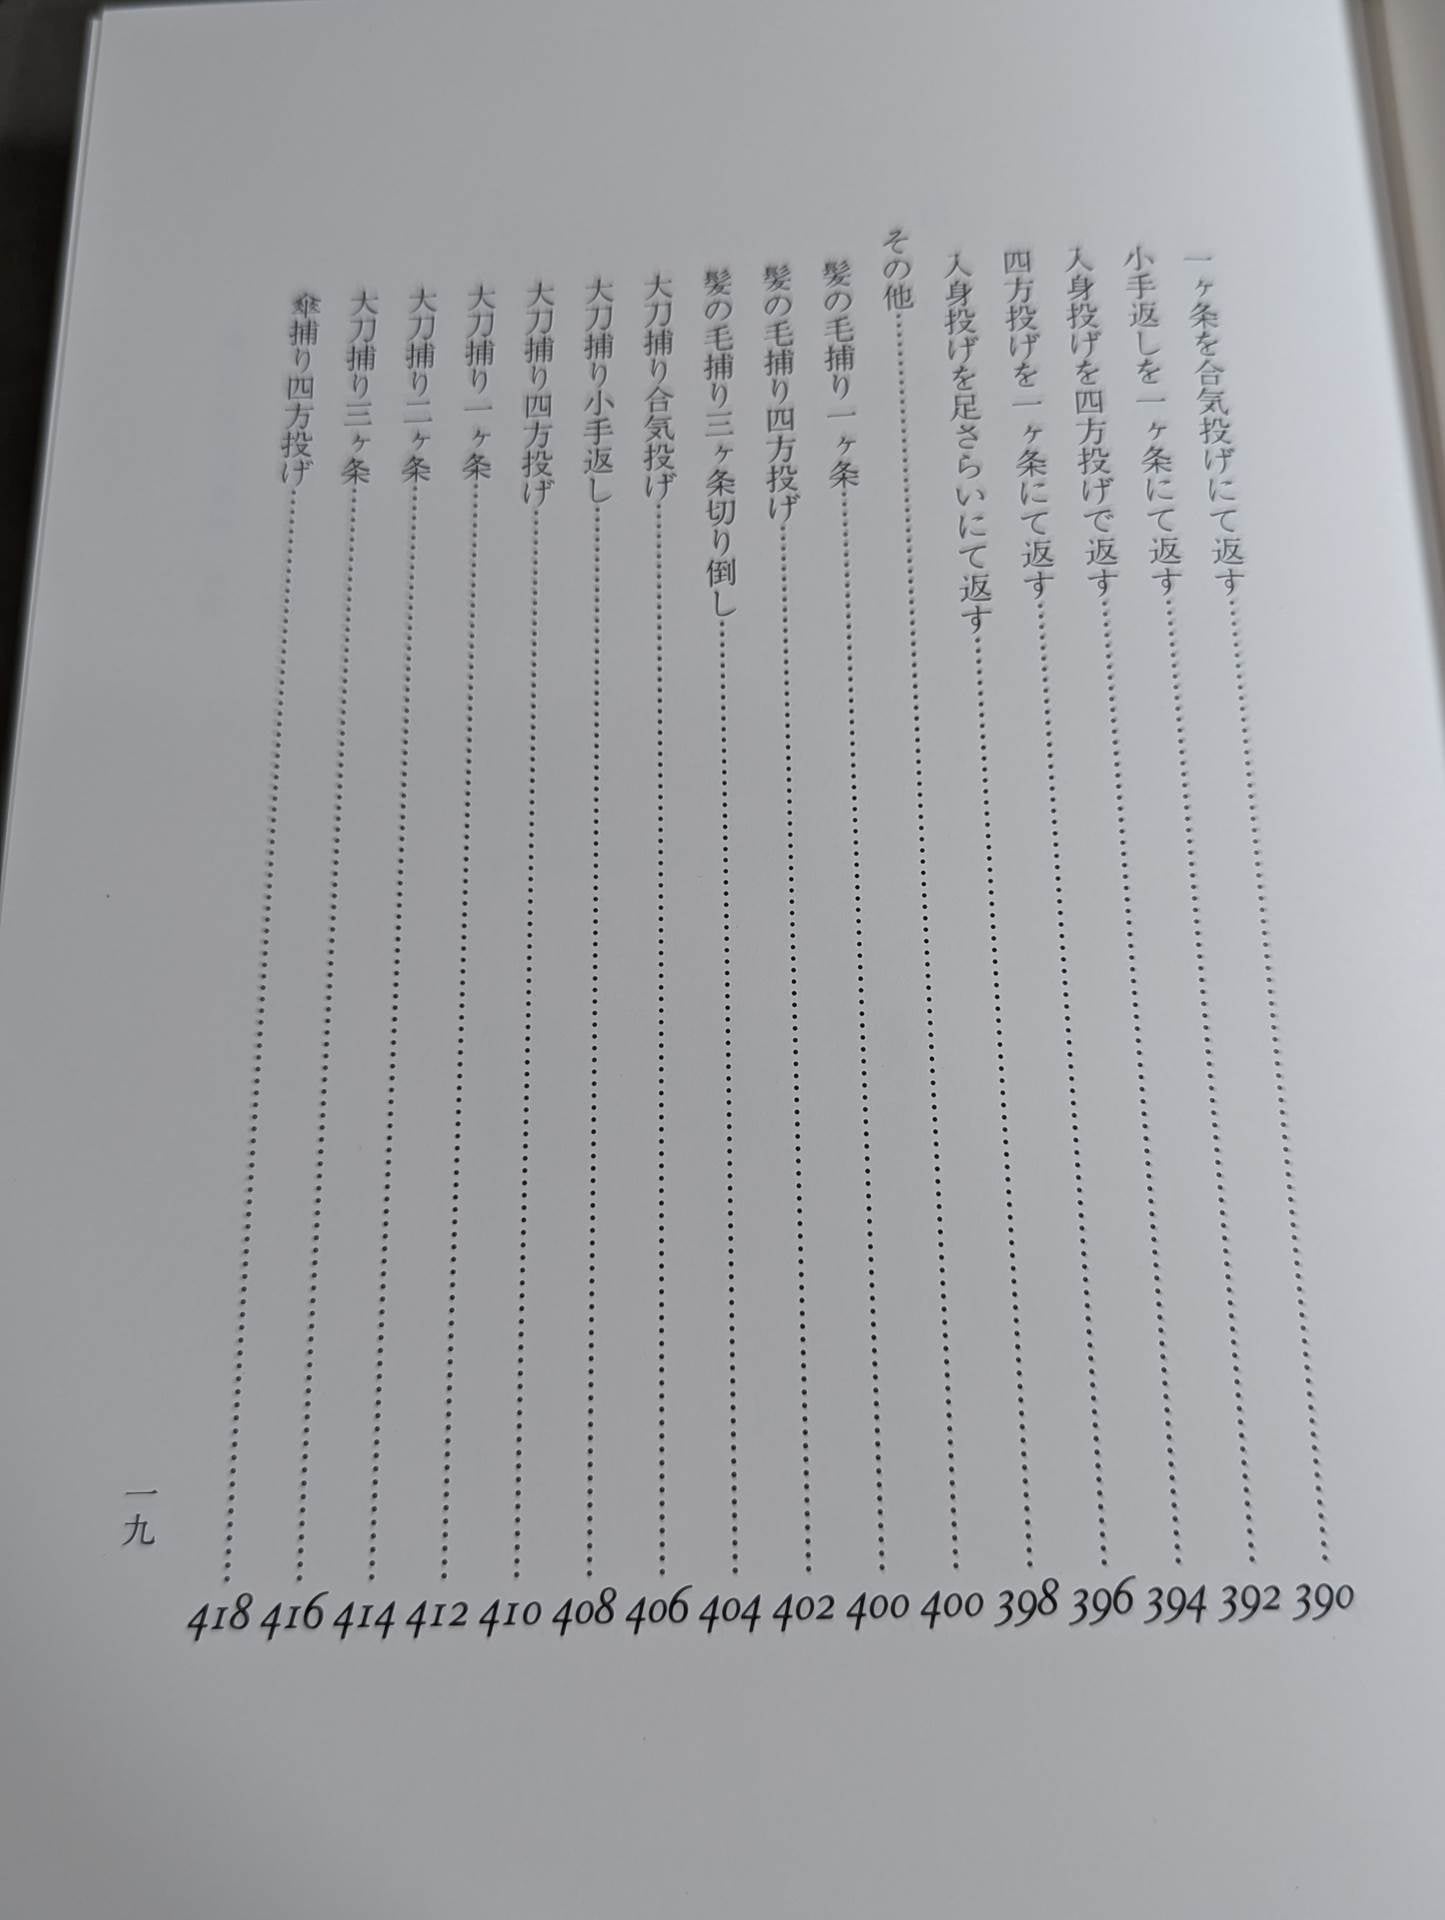 一ヶ条を合気投げにて返す…………390
小手返しを一ヶ条にて返す…………392
入身投げを四方投げで返す…………394
四方投げを一ヶ条にて返す…………396
入身投げを足さらいにて返す…………398
その他…………400
髪の毛捕り一ヶ条…………400
髪の毛捕り四方投げ…………402
髪の毛捕り三ヶ条切り倒し…………404
大刀捕り合気投げ…………406
大刀捕り小手返し…………408
大刀捕り四方投げ…………410
大刀捕り一ヶ条…………412
大刀捕り二ヶ条…………414
大刀捕り三ヶ条…………416
傘捕り四方投げ…………418
一九